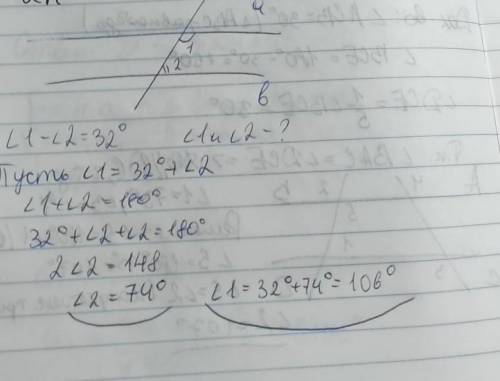 a
1
2
в
∠1-∠2=32° ∠1 и ∠2-?
Пусть ∠1=32°+∠2
∠1+∠2=180°
32°+∠2+∠2=180°
2∠2=148
∠2=74° ∠1=32°+74°=106°